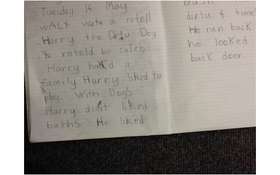 Tuesday 14 May
WALX write a retell
Harry the Dirty Dog
& retold be Caleb
Harry had a
family Harry liked to
play With Dogs
Harry didt liked
baths. He liked
dirty 4 times
He ran back
he looked
back deer